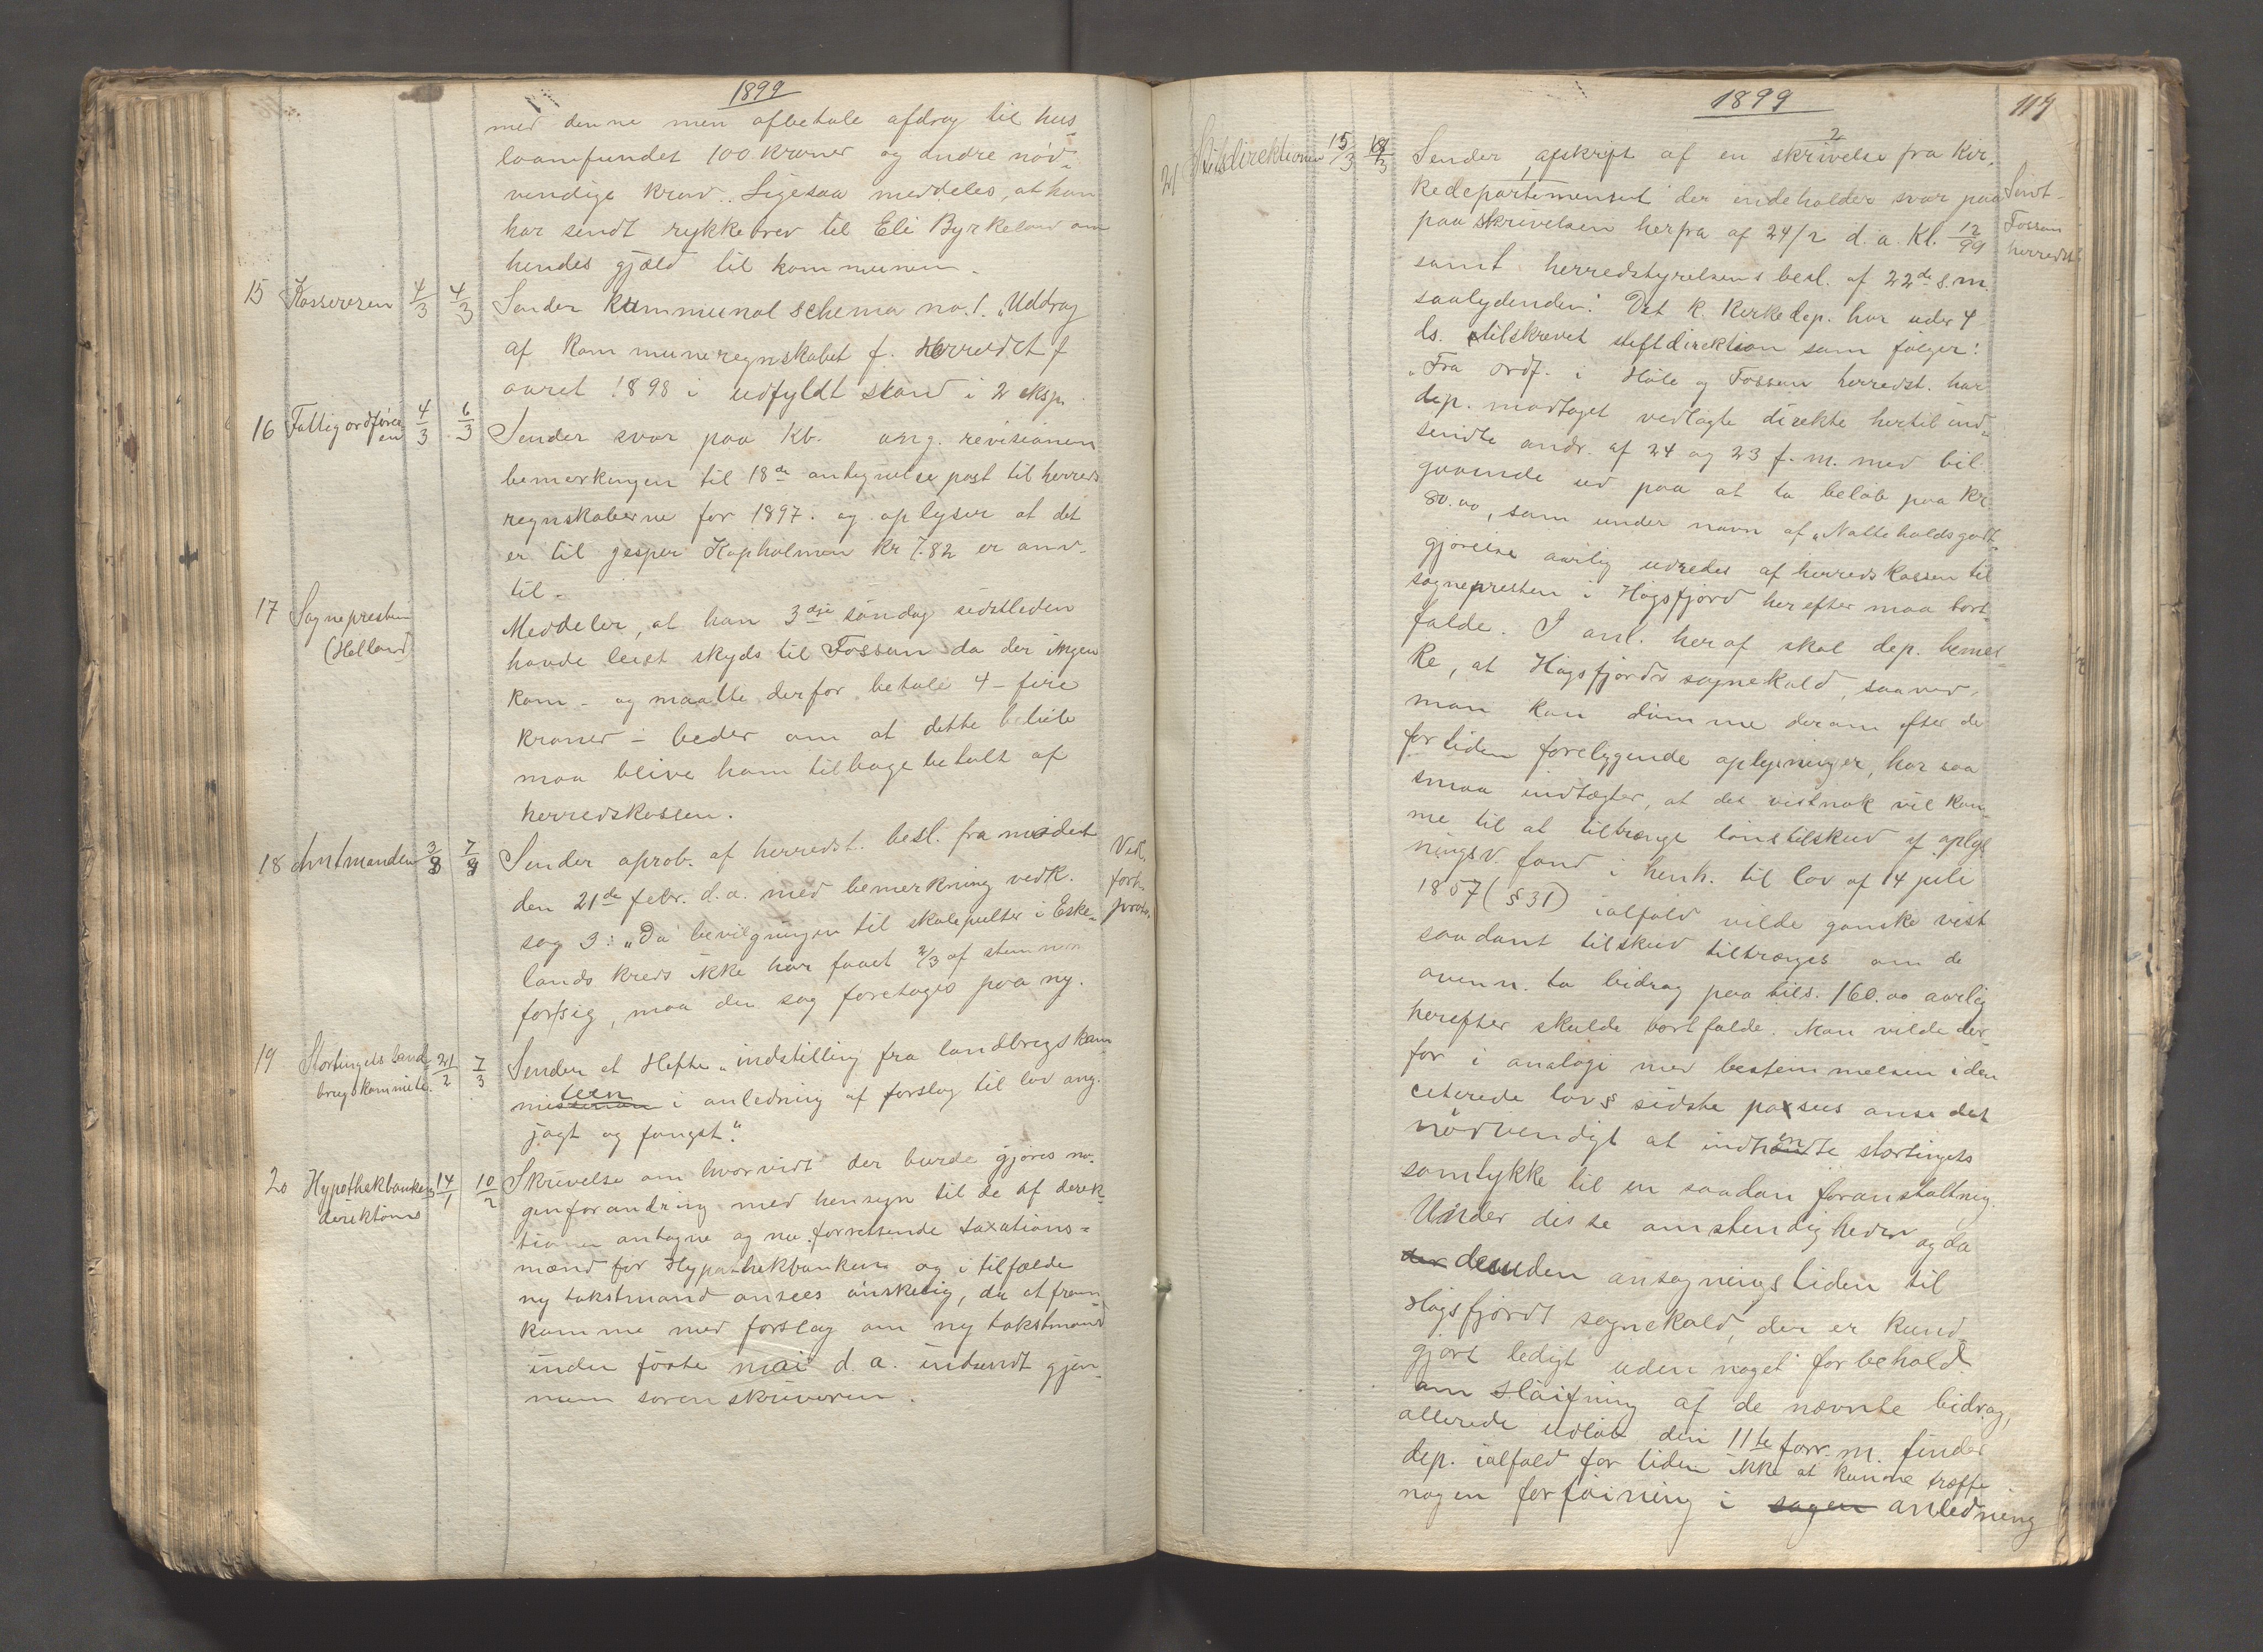 1899
med denne men afbetale afdrag til hus-
laanefundet 100 kroner og andre nød-
vendige krav. Ligesaa meddeles, at han
har sendt rykkebrev til Eli Byrkeland om
hendes gjæld til kommunen.
15 Kassereren 4/3 4/3 Sender kommunal schema no. 1. "Uddrag
af kommuneregnskabet f. Herredet f
aaret 1898 i udfyldt stand i 2 eksp.
16 Fattigordføreren 4/3 6/3 Sender svar paa Kb. ang. revisionen
bemerkingen til 18de antegnelse post til herreds
regnskaberne for 1897. og oplyser at det
er til Jesper Kapholmen kr 7.82 er anv-
til.
17 Sognepresten
(Helland)
Meddeler, at han 3dje søndag sidstleden
havde leiet skyds til Fossan da der ingen
kom - og maatte derfor betale 4 - fire
kroner - beder om at dette beløb
maa blive ham tilbagebetalt af
herredskassen.
18 Amtmanden 3/3 7/3 Sender aprob. af herredst. besl. fra mødet Vedl.
den 21de febr. d.a. med bemerkning vedk. forh.
sag 3: "Da bevilgningen til skolepulter i Eske- prot.
lands kreds ikke har faaet 2/3 af stemmer
for sig, maa den sag foretages paa ny.
19 Stortingets land- 21/2 7/3 Sender et Hefte "indstilling fra landbrugskom-
brugskomite. miteen i anledning af forslag til lov ang.
jagt og fangst."
20 Hypothekbankens 14/1 10/2 Skrivelse om hvorvidt der burde gjøres no-
direktions genforandring med hensyn til de af direk-
tionen antagne og nu forrettende taxations-
mænd for Hypothekbanken og i tilfælde
ny takstmand ansees ønskelig, da at frem
komme med forslag om ny takstmand
inden første mai d.a. indsendt gjen-
nem sorenskriveren.
1899 117
21 Stiftsdirektionen 15/3 18/3 Sender 2 afskrift af en skrivelse fra Kir-
kedepartementet der indeholder svar paa Sendt
paa skrivelsen herfra af 24/2 d.a. Kl. 12/99 Fossan
samt herredstyrelsens besl. af 22de s.m. herredst.
saalydende: "Det k. Kirkedep. har under 4
ds. tilskrevet stiftdirektion som følger:
"Fra ordf. i Høle og Fossan herredst. har
dep. modtaget vedlagte direkte hertil ind-
sendte andr. af 24 og 23 f.m. med bil.
gaaende ud paa at to beløb paa Kr
80.00, som under navn af "Natteholdsgodt-
gjørelse aarlig udredes af herredskassen til
sognepresten i Høgsfjord herefter maa bort-
falde. I anl. heraf skal dep. bemer-
ke, at Høgsfjords sognekald, saavidt
man kan dømme derom efter de
for tiden foreliggende oplysninger, har saa
smaa indtægter, at det vistnok vil kom-
me til at tiltrænge lønstilskud af oplys-
ningsv. fond i henh. til lov af 14 juli
1857 (§ 31) ialfald vilde ganske vist
saadant tilskud tiltrænges om de
ovenn. to bidrag paa tils. 160.00 aarlig
herefter skulde bortfalde. Man vilde der-
for i analogi med bestemmelsen i den
citerede lovs sidste passus anse det
nødvendigt at indhente stortingets
samtykke til en saadan foranstaltning.
Under disse omstendigheder og da
der desuden ansøgningstiden til
Høgsfjords sognekald, der er kund-
gjort ledigt uden noget forbehold
om sløifning af de nævnte bidrag,
allerede udløb den 11te forr. m. finder
dep. ialfald for tiden ikke at kunne træffe
nogen forføining i sagen anledning